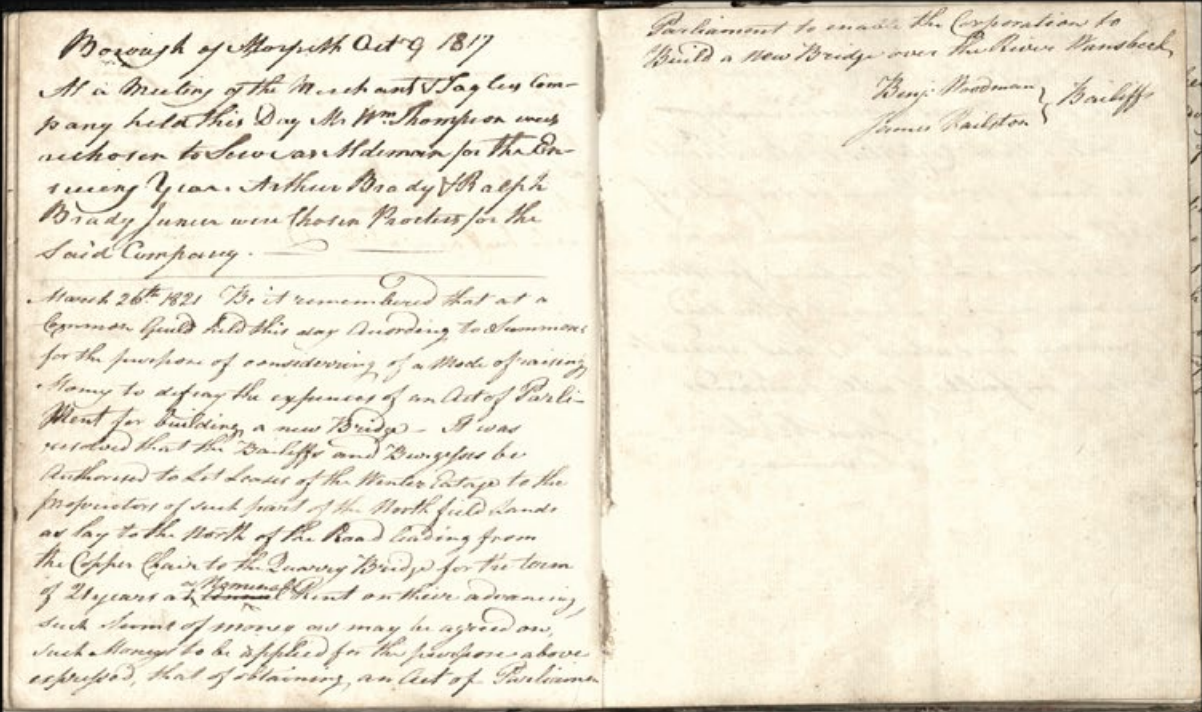 Borough of Morpeth Octr 9 1817
At a Meeting of the Merchant & Taylers Com-
pany held this Day Mr Wm Thompson were
rechosen to Serve as Alderman for the En-
sueing Year. Arthur Brady & Ralph
Brady Juner were Chosen Procters for the
Said Company.
March 26th 1821 Be it remembered that at a
Common Guild held this day According to Summons
for the purpose of considerring of a Mode of raising
Money to defray the expences of an Act of Parli-
Ment for building a new Bridge - It was
resolved that the Bailiffs and Burgesses be
Authorised to Let Leases of the Winter Eatage to the
proprietors of such part of the North field Lands
as lay to the North of the Road leading from
the Copper Chair to the Quarry Bridge for the term
of 21 years at a Nominal Rent on their advancing
such Sums of money as may be agreed on,
such Moneys to be applied for the purpose above
expressed, that of obtaining, an Act of Parliamen
Parliament to enable the Corporation to
Build a New Bridge over the River Wansbeck
Benj. Woodman } Bailiffs
James Railston